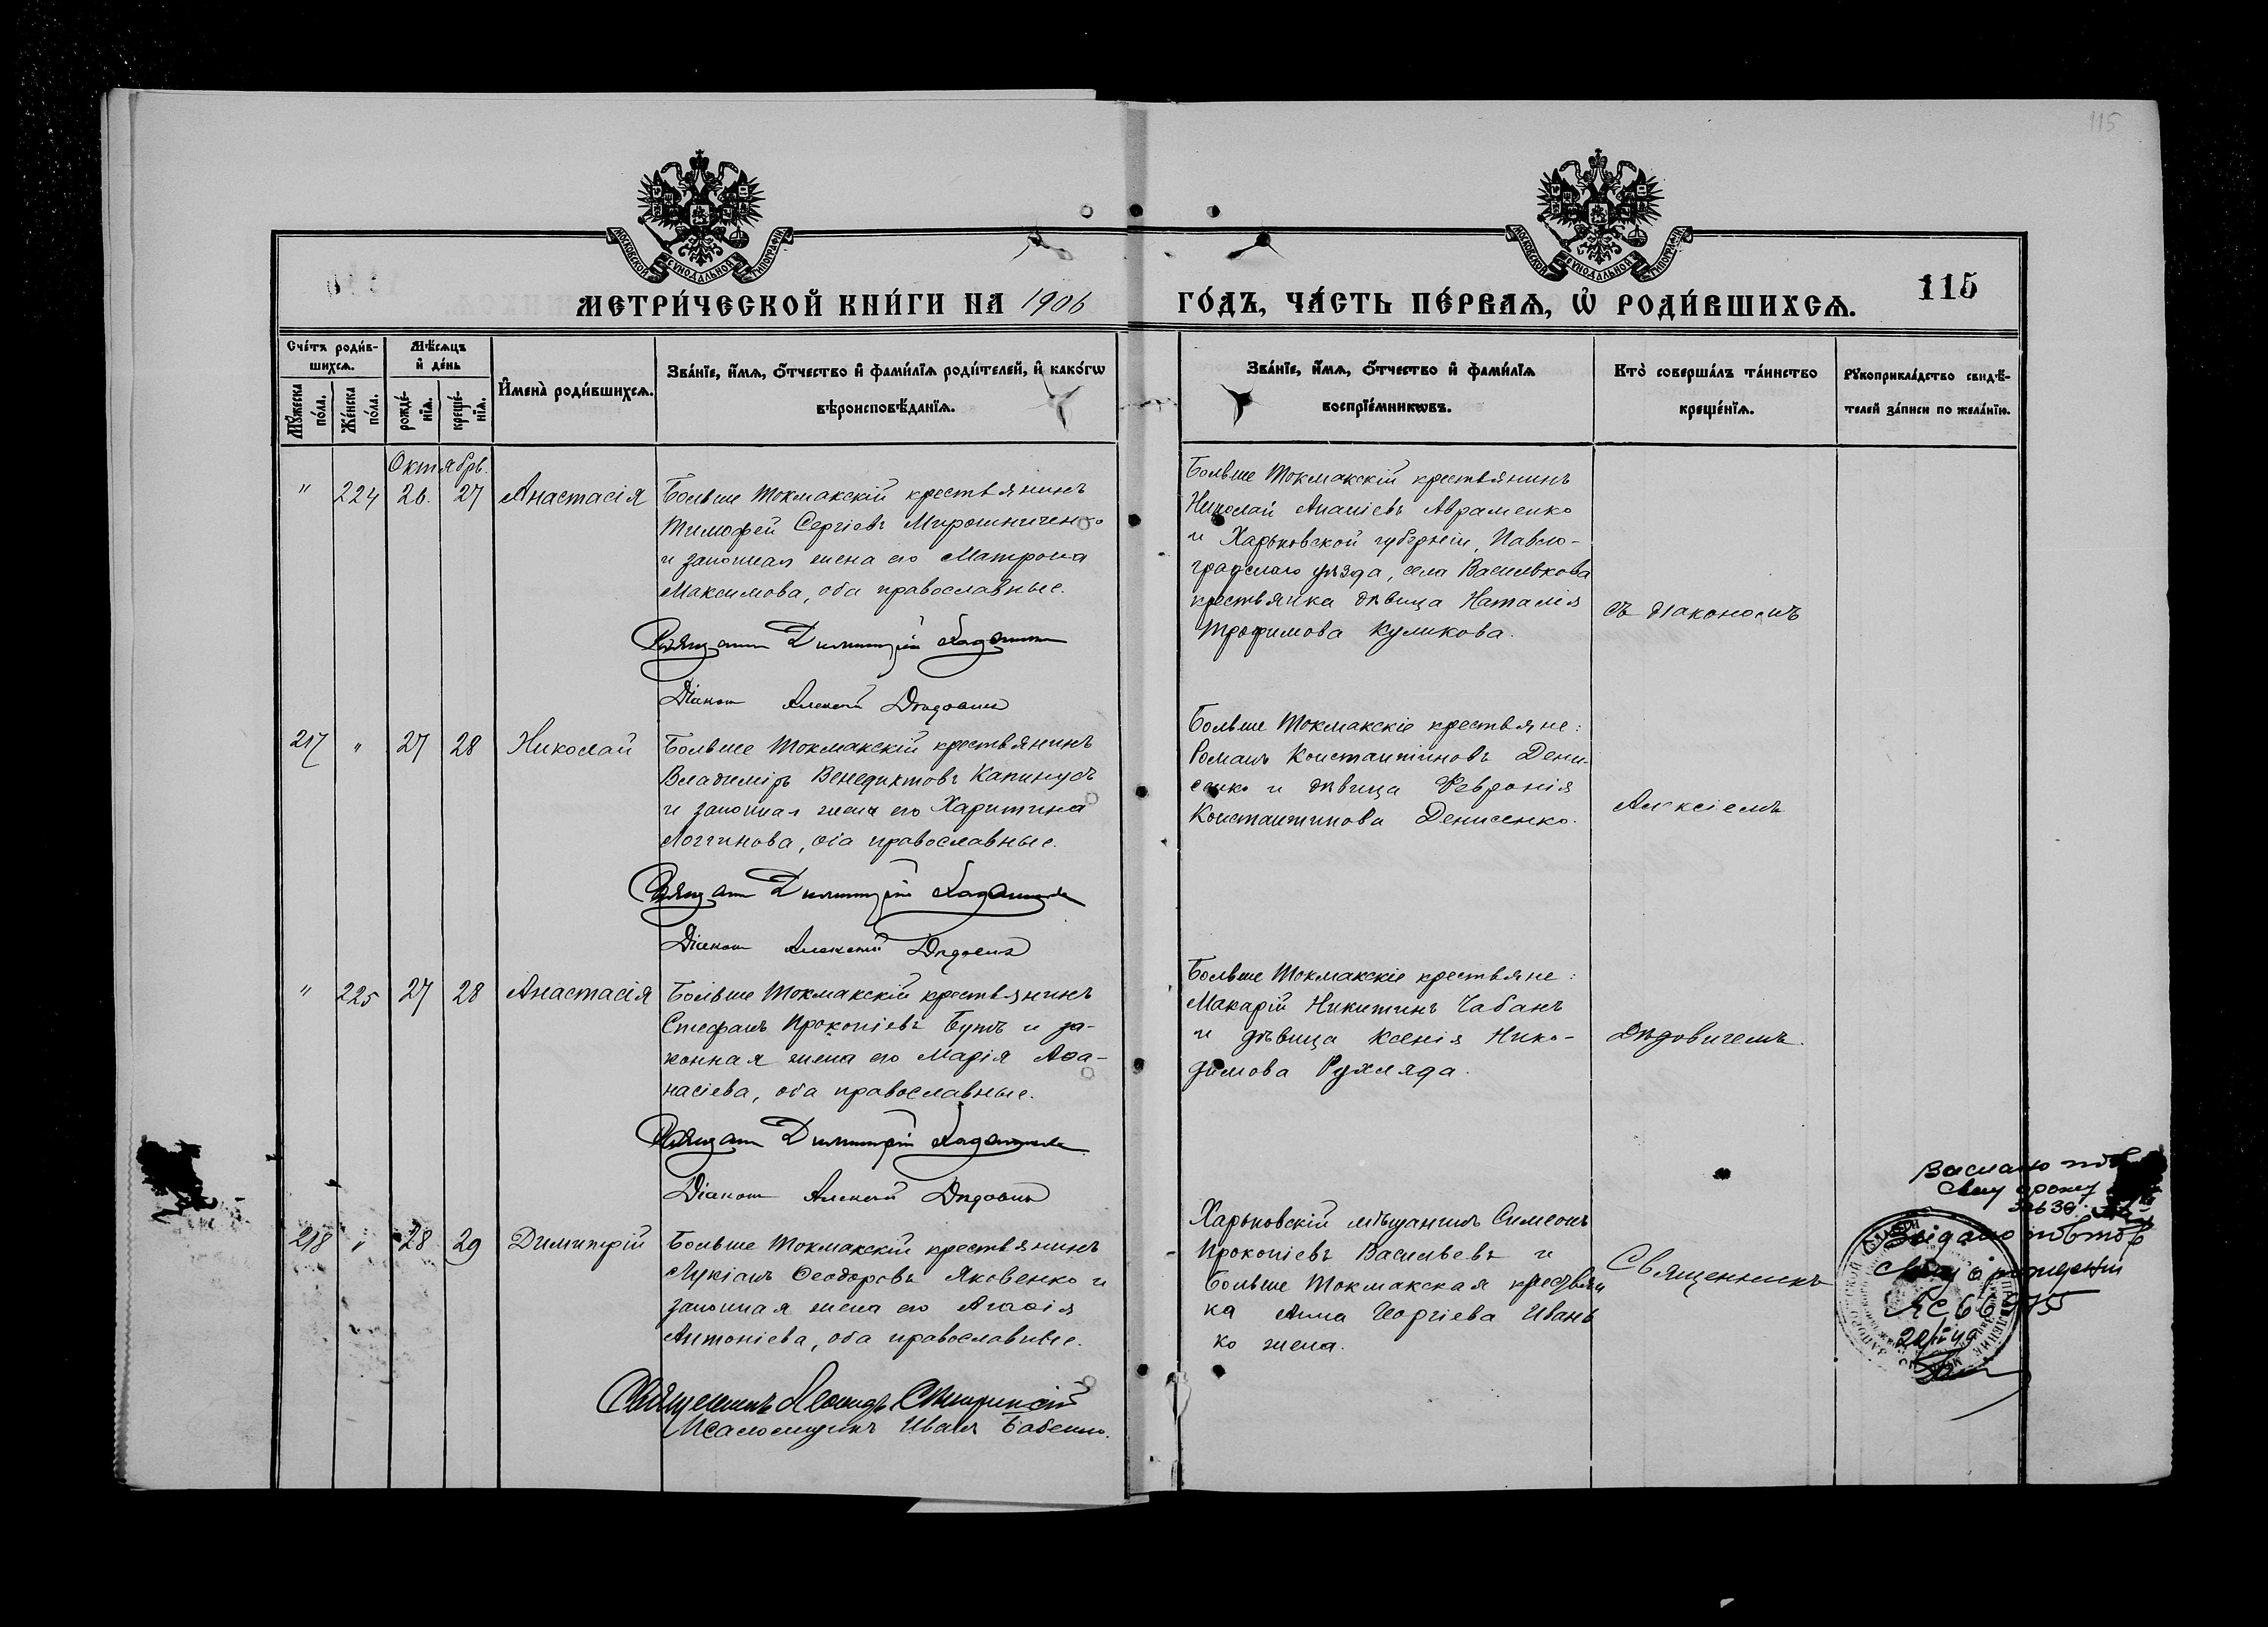 115
МОСКОВСКОЙ СУНОДАЛЬНОЙ ТИПОГРАФІИ
МОСКОВСКОЙ СУНОДАЛЬНОЙ ТИПОГРАФІИ
МЕТРИ́ЧЕСКОЙ КНИ́ГИ НА 1906 ГО́ДЪ, ЧА́СТЬ ПЕ́РВАѦ, Ѡ҆ РОДИ́ВШИХСѦ. 115
Сче́тъ роди́в-
шихсѧ.
Мꙋ́жеска
по́ла.
Же́нска
по́ла.
Мѣ́сѧцъ
и҆ де́нь
рожде́-
нїѧ.
креще́-
нїѧ.
И҆мена̀ роди́вшихсѧ.
Зва́нїе, и҆́мѧ, ѻ҆́тчество и҆ фами́лїѧ роди́телей, и҆ како́гѡ
вѣроисповѣ́данїѧ.
Зва́нїе, и҆́мѧ, ѻ҆́тчество и҆ фами́лїѧ
воспрїе́мникѡвъ.
Кто̀ соверша́лъ та́инство
креще́нїѧ.
Рꙋкоприкла́дство свидѣ́-
телей за́писи по жела́нїю.
Октябрь.
" 224 26. 27 Анастасія
Больше Токмакскій крестьянинъ
Тимофей Сергіевъ Мирошниченко
и законная жена его Матрона
Максимова, оба православные.
Священникъ Димитрій
Діаконъ Алексій Дѣдовичъ
Больше Токмакскій крестьянинъ
Николай Ананіевъ Авраменко
и Харьковской губерніи, Павло-
градскаго уѣзда, села Василькова
крестьянка дѣвица Наталія
Трофимова Куликова.
съ діакономъ
217 " 27 28 Николай
Больше Токмакскій крестьянинъ
Владиміръ Венедиктовъ Капинусъ
и законная жена его Харитина
Логгинова, оба православные.
Священникъ Димитрій
Діаконъ Алексій Дѣдовичъ
Больше Токмакскіе крестьяне:
Романъ Константиновъ Дени-
сенко и дѣвица Февронія
Константинова Денисенко.
Алексіемъ
" 225 27 28 Анастасія
Больше Токмакскій крестьянинъ
Стефанъ Прокопіевъ Бутъ и за-
конная жена его Марія Аѳа-
насіева, оба православные.
Священникъ Димитрій
Діаконъ Алексій Дѣдовичъ
Больше Токмакскіе крестьяне:
Макарій Никитинъ Чабанъ
и дѣвица Ксенія Нико-
димова Рухляда.
Дѣдовичемъ.
218 " 28 29 Димитрій
Больше Токмакскій крестьянинъ
Лукіанъ Ѳеодоровъ Яковенко и
законная жена его Агаѳія
Антоніева, оба православные.
Священникъ Леонидъ
Псаломщикъ Иванъ Бабенко.
Харьковскій мѣщанинъ Симеонъ
Прокопіевъ Васильевъ и
Больше Токмакская крестьян
ка Анна Георгіева Ивань
ко жена.
Священникъ